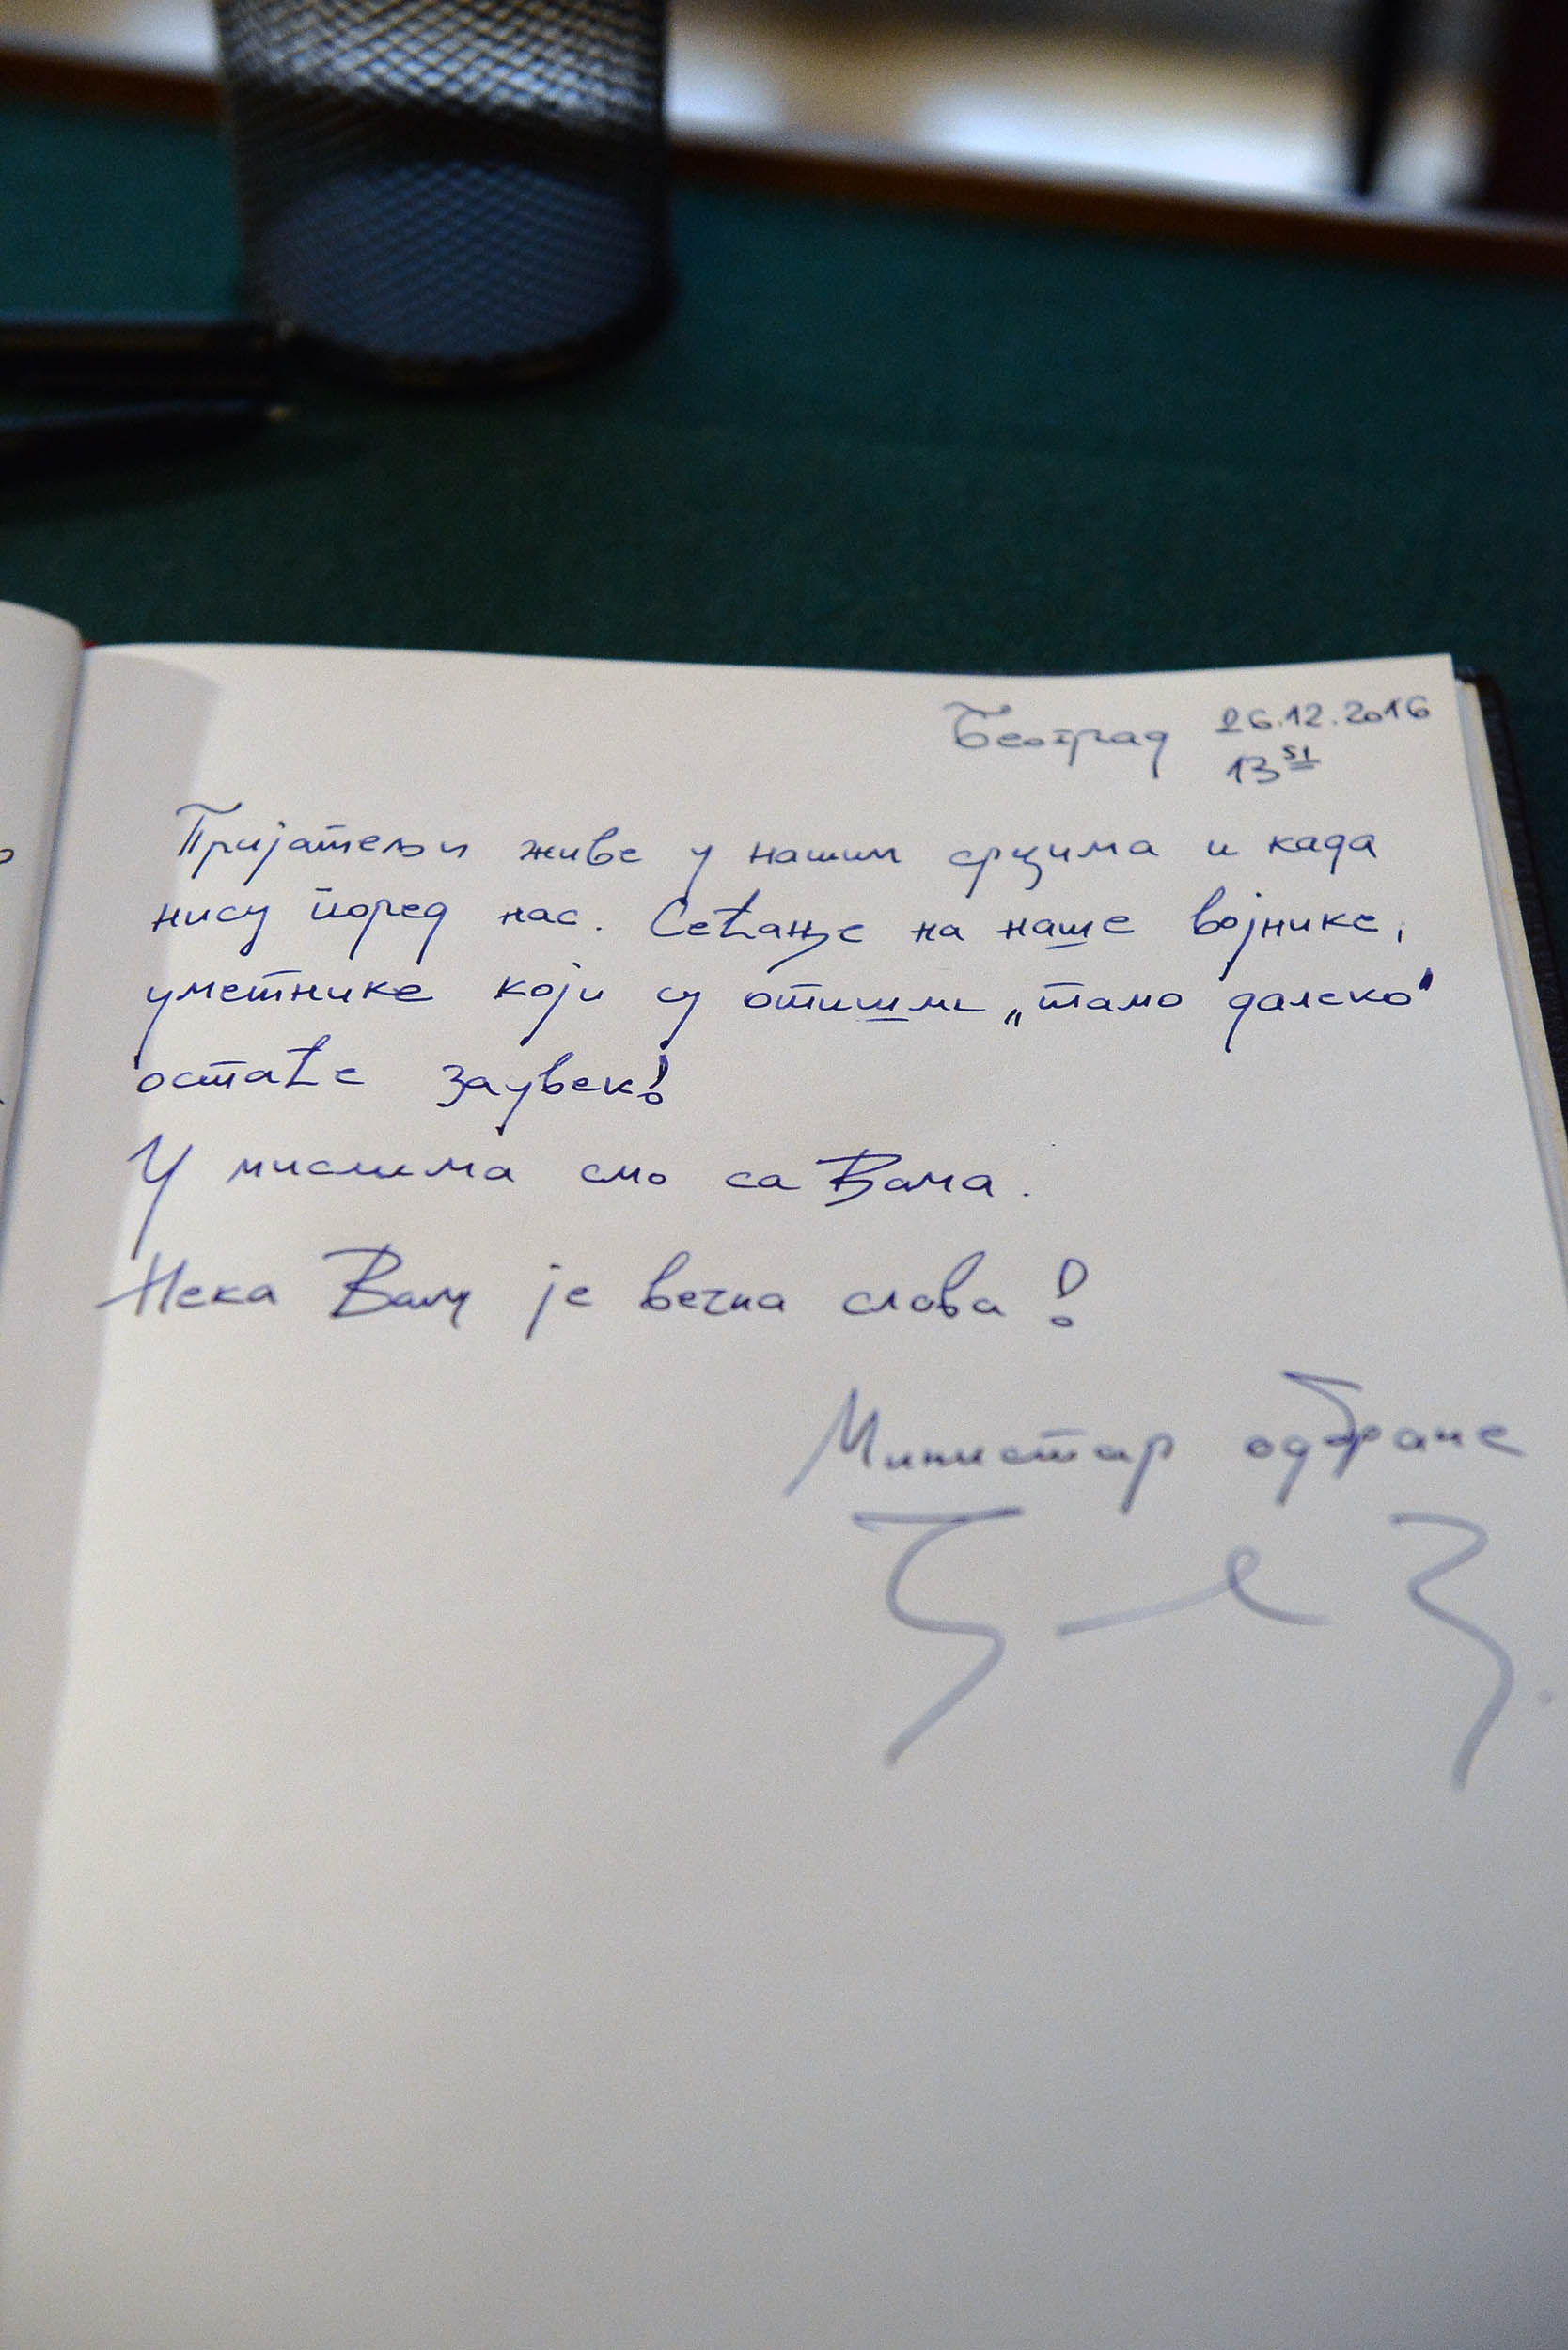 Београд 26.12.2016
13 51
Пријатељи живе у нашим срцима и када
нису поред нас. Сећање на наше војнике,
уметнике који су отишли „тамо далеко“
остаће заувек!
У мислима смо са Вама.
Нека Вам је вечна слава!
Министар одбране